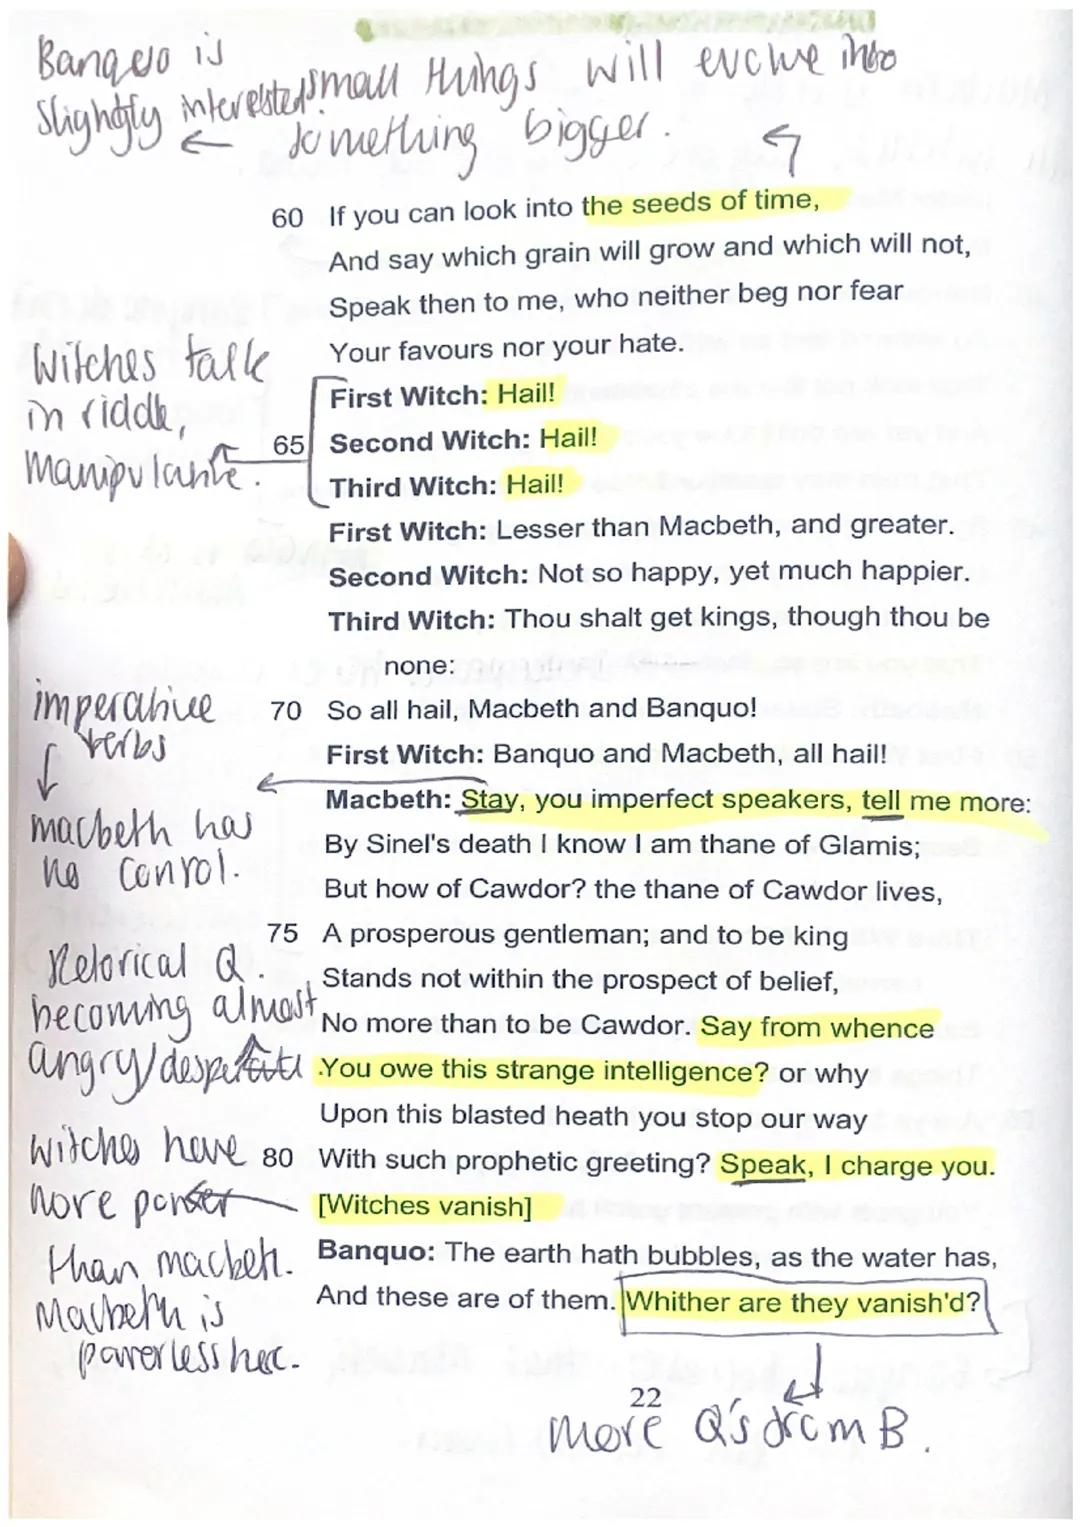 Banquo is
slightly interested
small things will evolve into
something bigger.
60 If you can look into the seeds of time,
And say which grain will grow and which will not,
Speak then to me, who neither beg nor fear
Your favours nor your hate.
Witches talk
in riddle,
manipulative.
First Witch: Hail!
65 Second Witch: Hail!
Third Witch: Hail!
First Witch: Lesser than Macbeth, and greater.
Second Witch: Not so happy, yet much happier.
Third Witch: Thou shalt get kings, though thou be
none:
imperative
verbs
macbeth has
no conrol.
70 So all hail, Macbeth and Banquo!
First Witch: Banquo and Macbeth, all hail!
Macbeth: Stay, you imperfect speakers, tell me more:
By Sinel's death I know I am thane of Glamis;
But how of Cawdor? the thane of Cawdor lives,
75 A prosperous gentleman; and to be king
Stands not within the prospect of belief,
No more than to be Cawdor. Say from whence
You owe this strange intelligence? or why
Upon this blasted heath you stop our way
80 With such prophetic greeting? Speak, I charge you.
[Witches vanish]
Retorical Q.
becoming almost
angry/
witches have
more power
than macbeth.
Macbeth is
powerless here.
Banquo: The earth hath bubbles, as the water has,
And these are of them. Whither are they vanish'd?
22
more Q's from B.